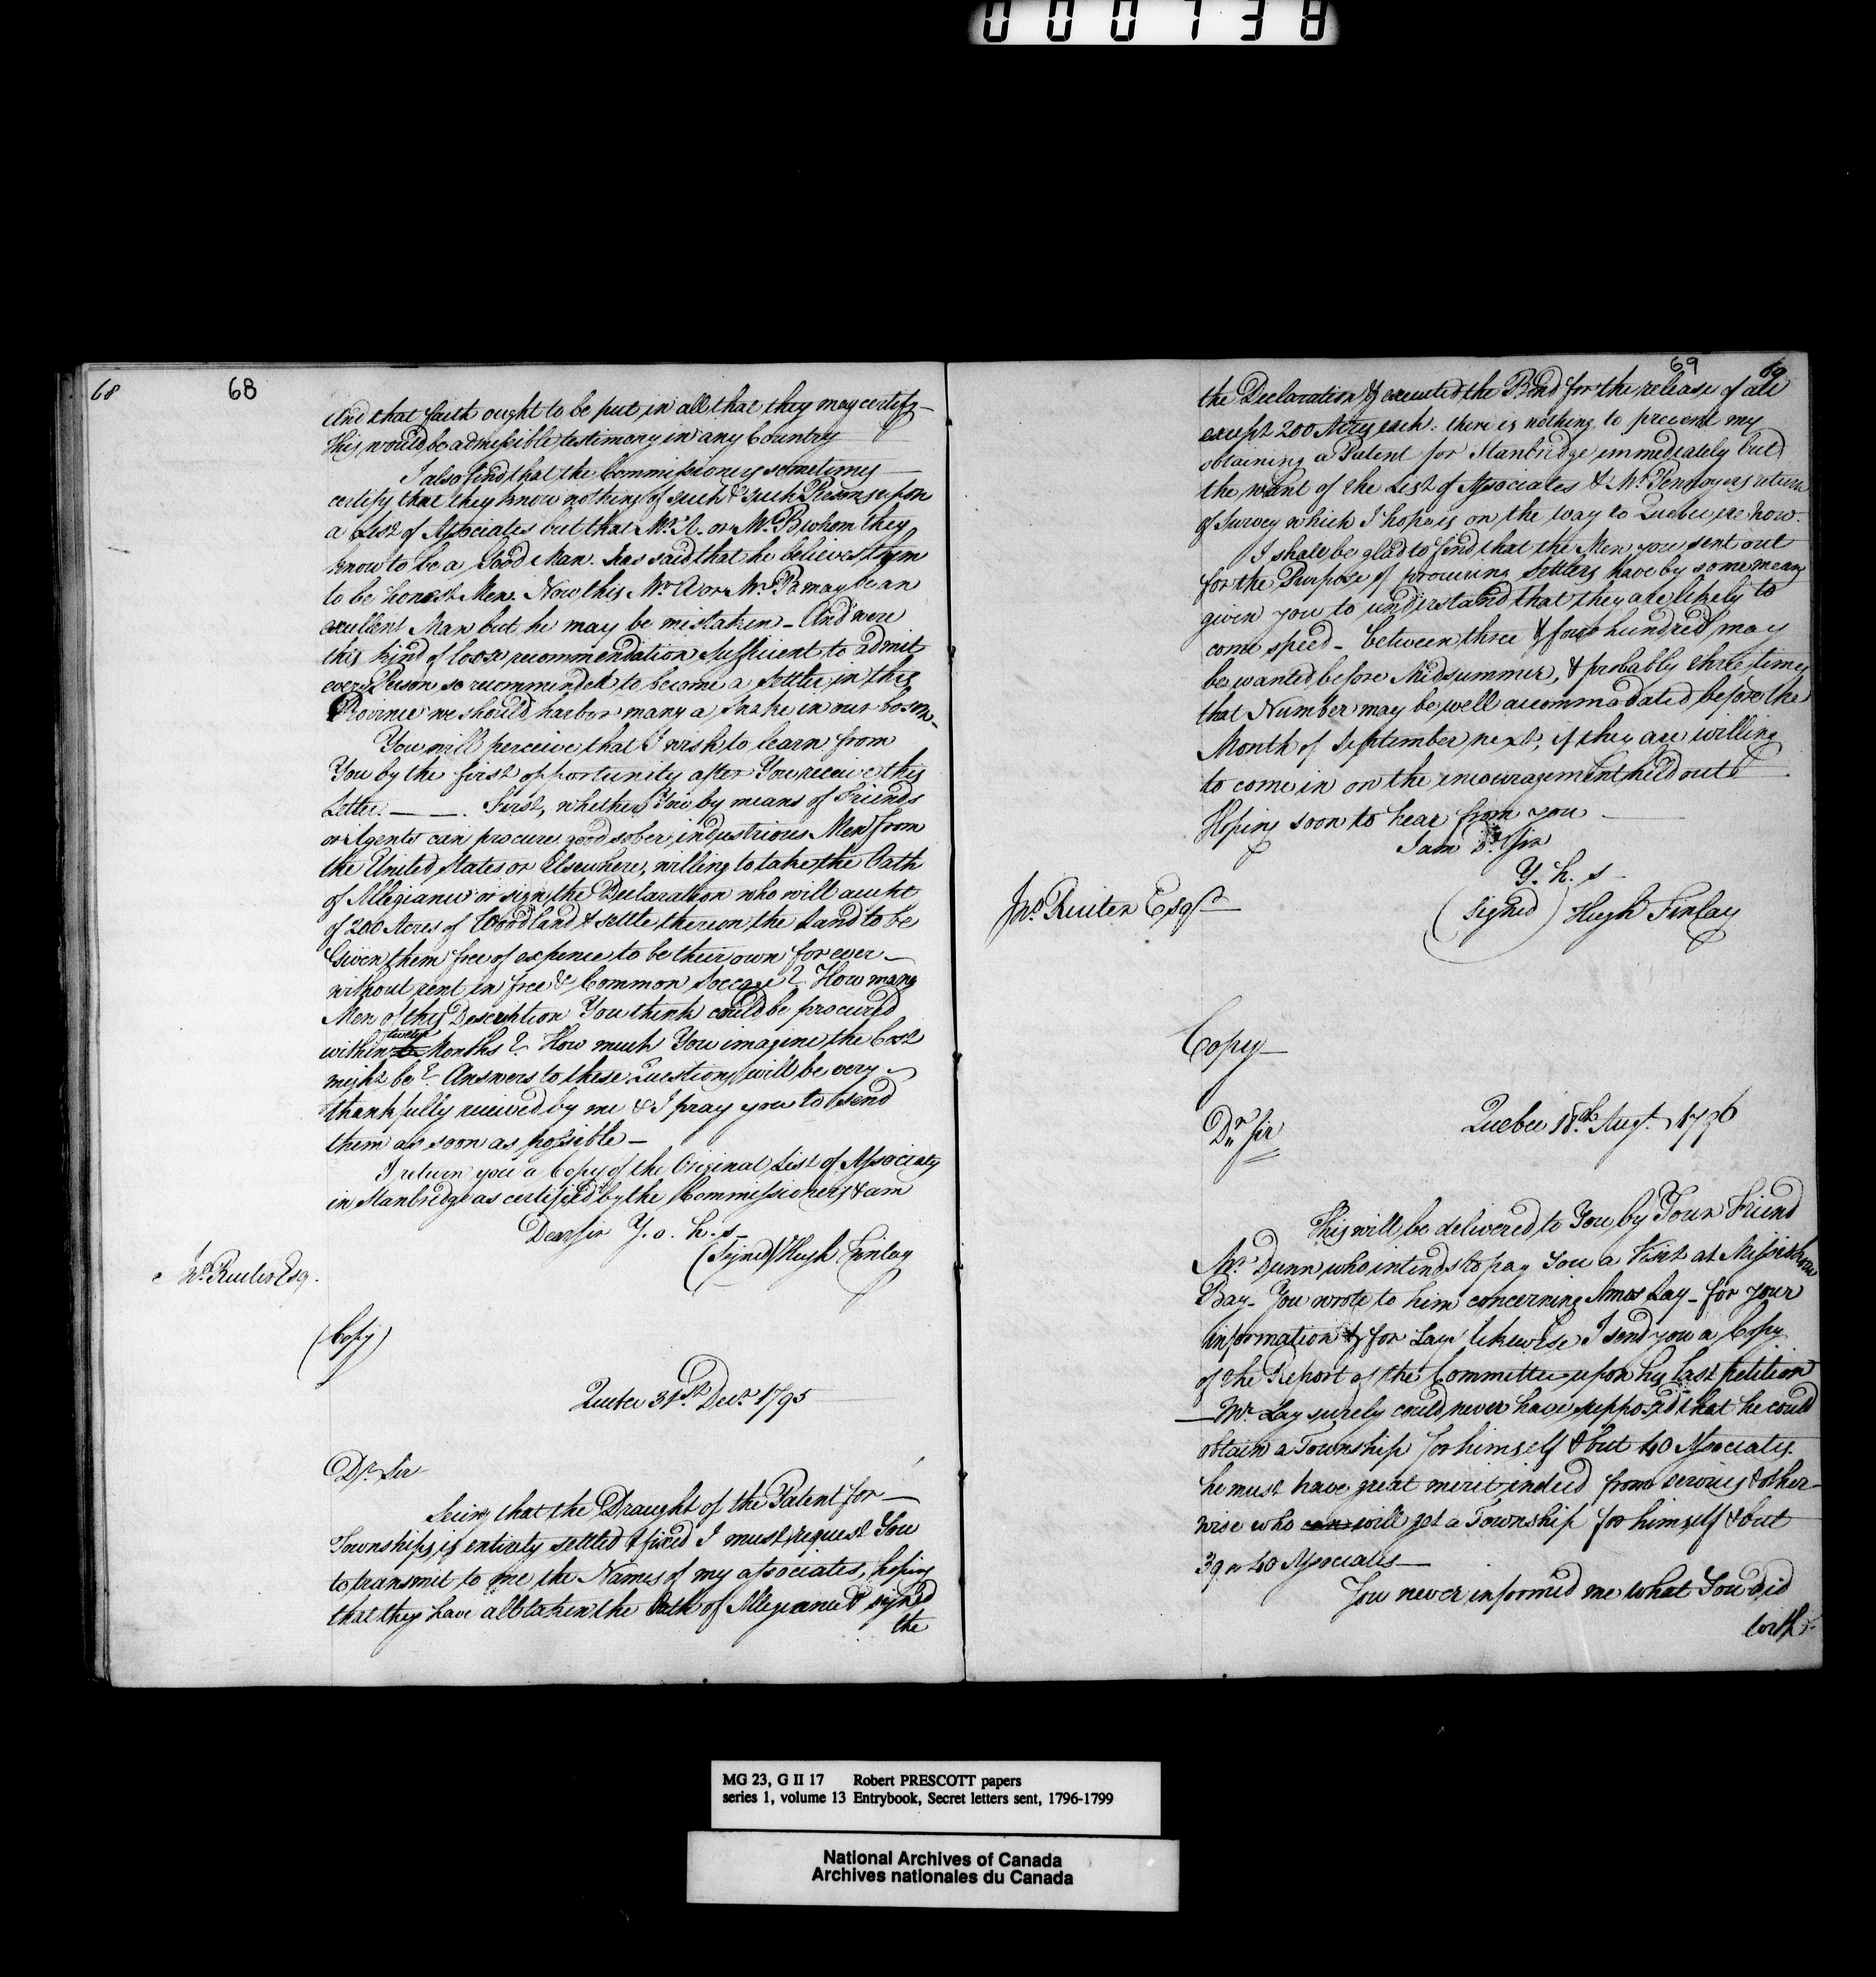 000738
68 68
And that faith ought to be put in all that they may certify—
this would be admissible testimony in any Country
I also find that the Commissioners sometimes
certify that they know nothing of such & such Persons upon
a List of Associates but that Mr. A. or Mr. B whom they
know to be a Good Man. has said that he believes them
to be honest Men. Now this Mr. A or Mr. B may be an
excellent Man but he may be mistaken – And were
this kind of loose recommendation sufficient to admit
every Person so recommended to become a Settler in this
Province we should harbor many a Snake in our bosom.
You will perceive that I wish to learn from
You by the first opportunity after You receive this
Letter. — — . First, whether You by means of Friends
or Agents can procure good sober, industrious Men from
the United States or Elsewhere, willing to take the Oath
of Allegiance or sign the Declaration who will accept
of 200 Acres of Woodland & settle thereon the Land to be
Given them free of expence to be their own for ever —
without rent in free & Common Soccage? How many
Men of this Description You think could be procured
within twelve Months? How much You imagine the Cost
might be? Answers to these Questions will be very
thankfully received by me & I pray you to send
them as soon as possible —
I return you a Copy of the Original List of Associates
in Stanbridge as certified by the Commissioners & am
Dear Sir Y. o. h. s—
(Signed) Hugh Finlay
Jno. Ruiter Esq.
(Copy)
Quebec 31st. Decr. 1795
Dr. Sir
Seeing that the Draught of the Patent for
Townships is entirely settled & fixed I must request You
to transmit to me the Names of my associates, hoping
that they have all taken the Oath of Allegiance & signed
the
69 69
the Declaration & executed the Bond for the release of all
except 200 Acres each: there is nothing to prevent my
obtaining a Patent for Stanbridge immediately but
the want of the List of Associates & Mr. Pennoyers return
of Survey which I hope is on the way to Quebec ere now.
I shall be glad to find that the Men you sent out
for the Purpose of procuring Settlers have by some means
given you to understand that they are likely to
come speed – between three & four hundred may
be wanted before Midsummer, & probably three times
that Number may be well accommodated before the
Month of September next, if they are willing
to come in on the encouragement held out
Hoping soon to hear from you
I am Dr. Sir
Y. h. s—
(Signed) Hugh Finlay
Jno. Ruiter Esqr.
Copy—
Quebec 18th. Augt. 1796
Dr. Sir
This will be delivered to You by Your Friend
Mr. Dunn who intends to pay You a Visit at Missiskoui
Bay – You wrote to him concerning Amos Lay – for your
information & for Lays likewise I send you a Copy
of the Report of the Committee upon his last petition
— Mr. Lay surely could never have supposed that he could
obtain a Township for himself & but 40 Associates.
he must have great merit indeed from services & other-
wise who can will get a Township for himself & but
39 or 40 Associates—
You never informed me what You did
with
MG 23, G II 17 Robert PRESCOTT papers
series 1, volume 13 Entrybook, Secret letters sent, 1796-1799
National Archives of Canada
Archives nationales du Canada